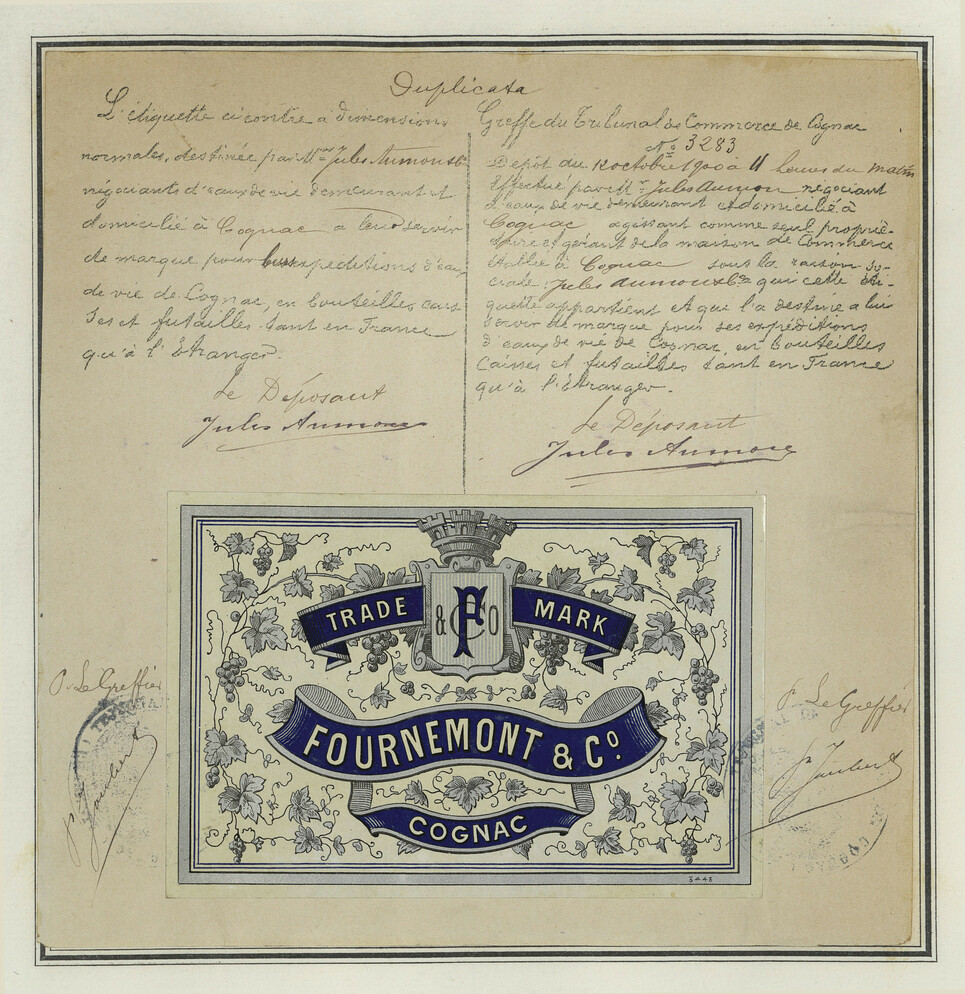 Duplicata
L'étiquette ci contre à dimensions
normales, destinée par Mrs Jules Aumon & Co
négociants d'eaux de vie demeurant et
domicilié à Cognac a leur servir
de marque pour leurs expéditions d'eaux
de vie de Cognac, en bouteilles, cais
ses et futailles tant en France
qu'à l'Étranger.
Le Déposant
Jules Aumon
Greffe du Tribunal de Commerce de Cognac
No 3283
Dépôt du 12 octobre 1900 à 11 heures du matin
Effectué par Mr Jules Aumon négociant
d'eaux de vie demeurant et domicilié à
Cognac agissant comme seul proprié-
taire et gérant de la maison de Commerce
établie à Cognac sous la raison so-
ciale: Jules Aumon & Co qui cette éti-
quette appartient et qui l'a destinée a lui
servir de marque pour ses expéditions
d'eaux de vie de Cognac, en bouteilles
caisses et futailles tant en France
qu'à l'Étranger.
Le Déposant
Jules Aumon
TRADE MARK
F & Co
FOURNEMONT & Co.
COGNAC
3443
P. Le Greffier
P. Le Greffier
COGNAC